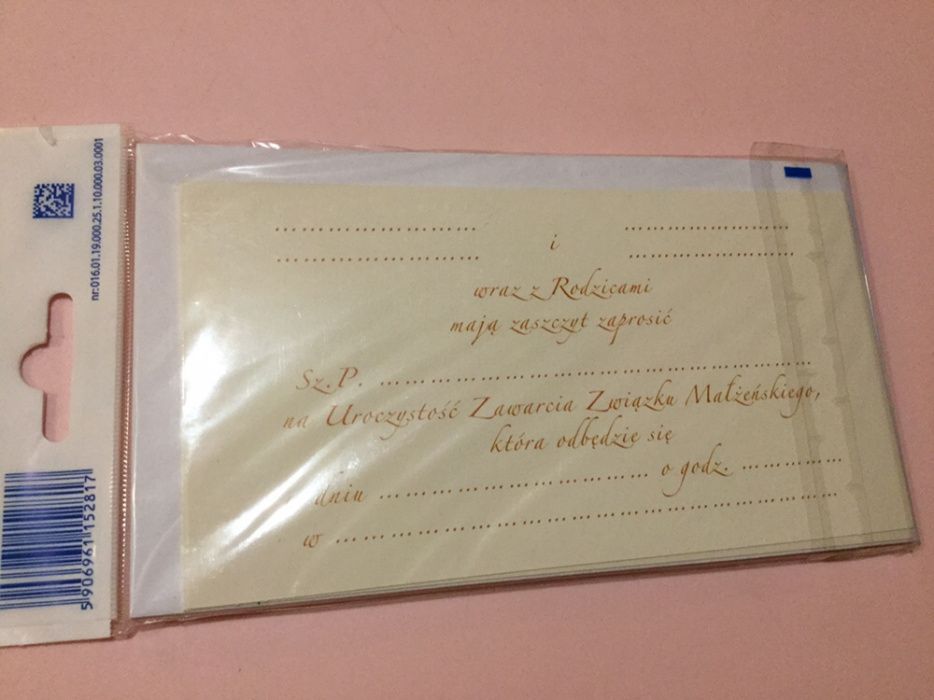 nr:016.01.19.000.25.1.10.000.03.0001
5 906961 152817
........................ i ........................
........................ ........................
wraz z Rodzicami
mają zaszczyt zaprosić
Sz.P. ................................................
na Uroczystość Zawarcia Związku Małżeńskiego,
która odbędzie się
dniu .............................. o godz. ............
w ............................................................